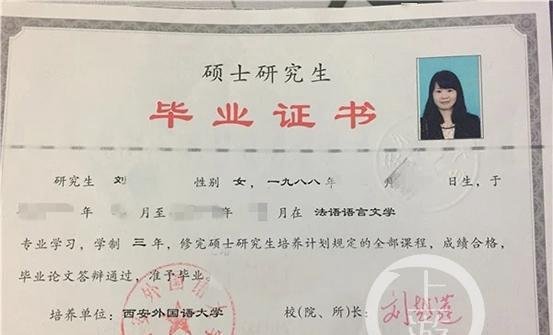 硕士研究生
毕业证书
研究生 刘 性别 女，一九八八年 月 日生，于
年 月至 年 月在 法语语言文学
专业学习，学制 三年，修完硕士研究生培养计划规定的全部课程，成绩合格，
毕业论文答辩通过，准予毕业。
培养单位：西安外国语大学 校(院、所)长：